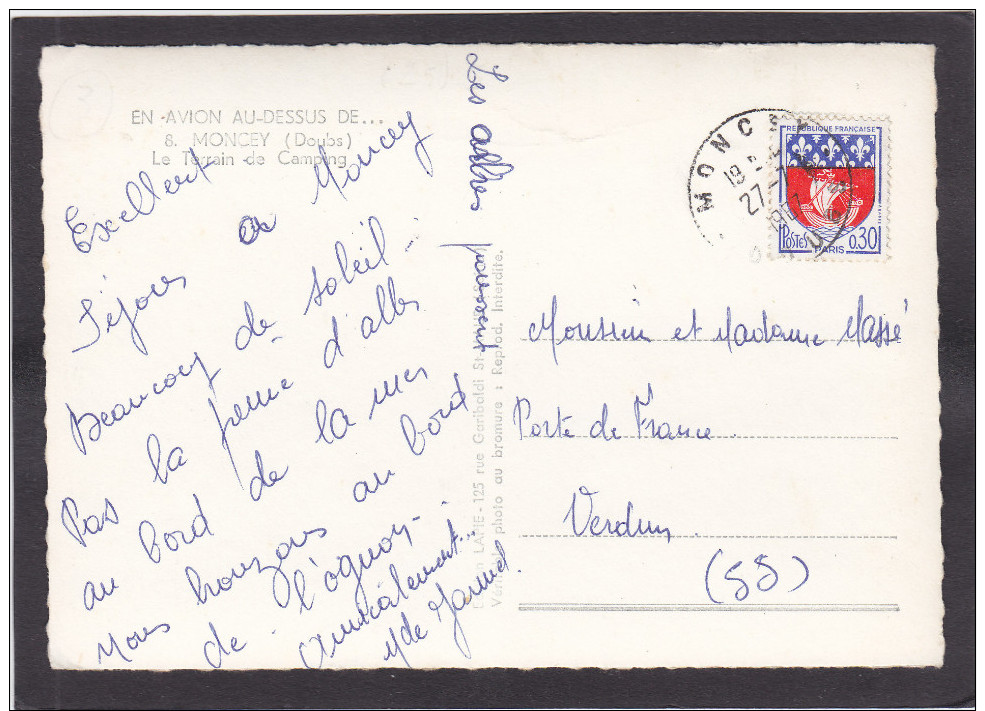 EN AVION AU-DESSUS DE...
8. MONCEY (Doubs)
Le Terrain de Camping
Excellent
Séjour à Moncey
Beaucoup de soleil -
Pas la peine d'aller
au bord de la mer
nous bronzons au bord
de l'ognon -
amicalement...
Les arbres poussent
LAPIE - 125 rue Garibaldi St-
photo au bromure : Reprod. Interdite.
MONCEY
19
27-7
REPUBLIQUE FRANÇAISE
POSTES 0.30
PARIS
Monsieur et Madame Massé
Porte de France
Verdun
(55)